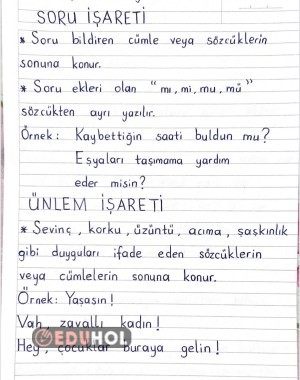 SORU İŞARETİ
* Soru bildiren cümle veya sözcüklerin
sonuna konur.
* Soru ekleri olan "mı, mi, mu, mü"
sözcükten ayrı yazılır.
Örnek: Kaybettiğin saati buldun mu?
Eşyaları taşımama yardım
eder misin?
ÜNLEM İŞARETİ
* Sevinç, korku, üzüntü, acıma, şaşkınlık
gibi duyguları ifade eden sözcüklerin
veya cümlelerin sonuna konur.
Örnek: Yaşasın!
Vah, zavallı kadın!
EDUHOL
Hey, çocuklar buraya gelin!